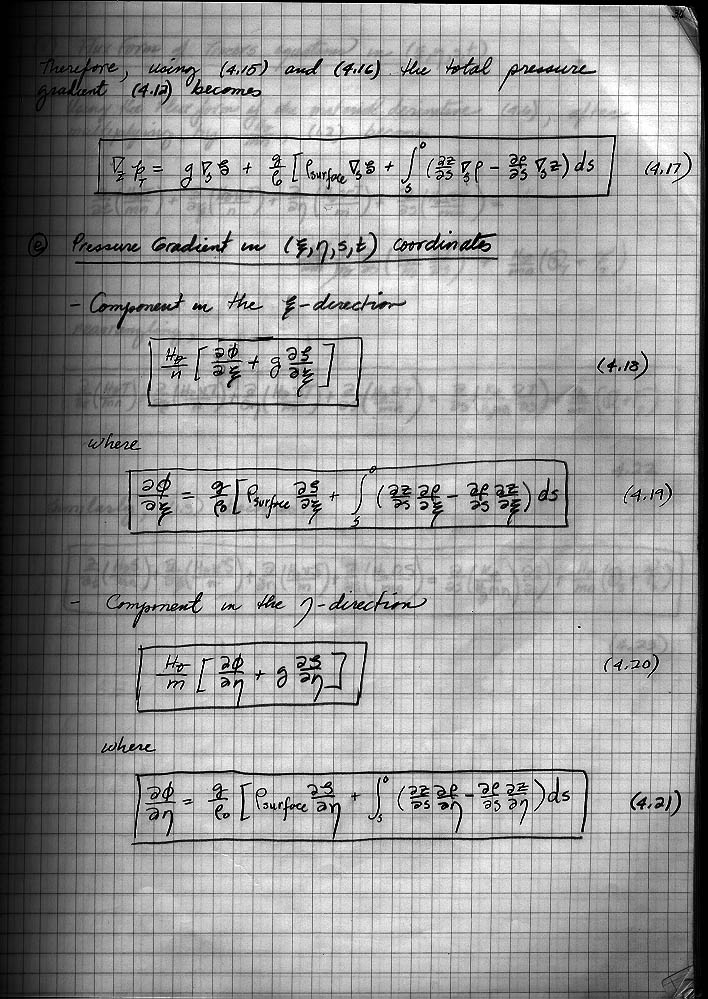 Therefore, using (4.15) and (4.16) the total pressure
gradient (4.12) becomes
∇_z p_T = g ∇_s ζ + g/ρ₀ [ρ_surface ∇_s ζ + ∫_s^0 (∂z/∂s ∇_s ρ − ∂ρ/∂s ∇_s z) ds (4.17)
(e) Pressure Gradient in (ξ, η, s, t) coordinates
- Component in the ξ-direction
H_z/n [∂φ/∂ξ + g ∂ζ/∂ξ] (4.18)
where
∂φ/∂ξ = g/ρ₀ [ρ_surface ∂ζ/∂ξ + ∫_s^0 (∂z/∂s ∂ρ/∂ξ − ∂ρ/∂s ∂z/∂ξ) ds (4.19)
- Component in the η-direction
H_z/m [∂φ/∂η + g ∂ζ/∂η] (4.20)
where
∂φ/∂η = g/ρ₀ [ρ_surface ∂ζ/∂η + ∫_s^0 (∂z/∂s ∂ρ/∂η − ∂ρ/∂s ∂z/∂η) ds (4.21)